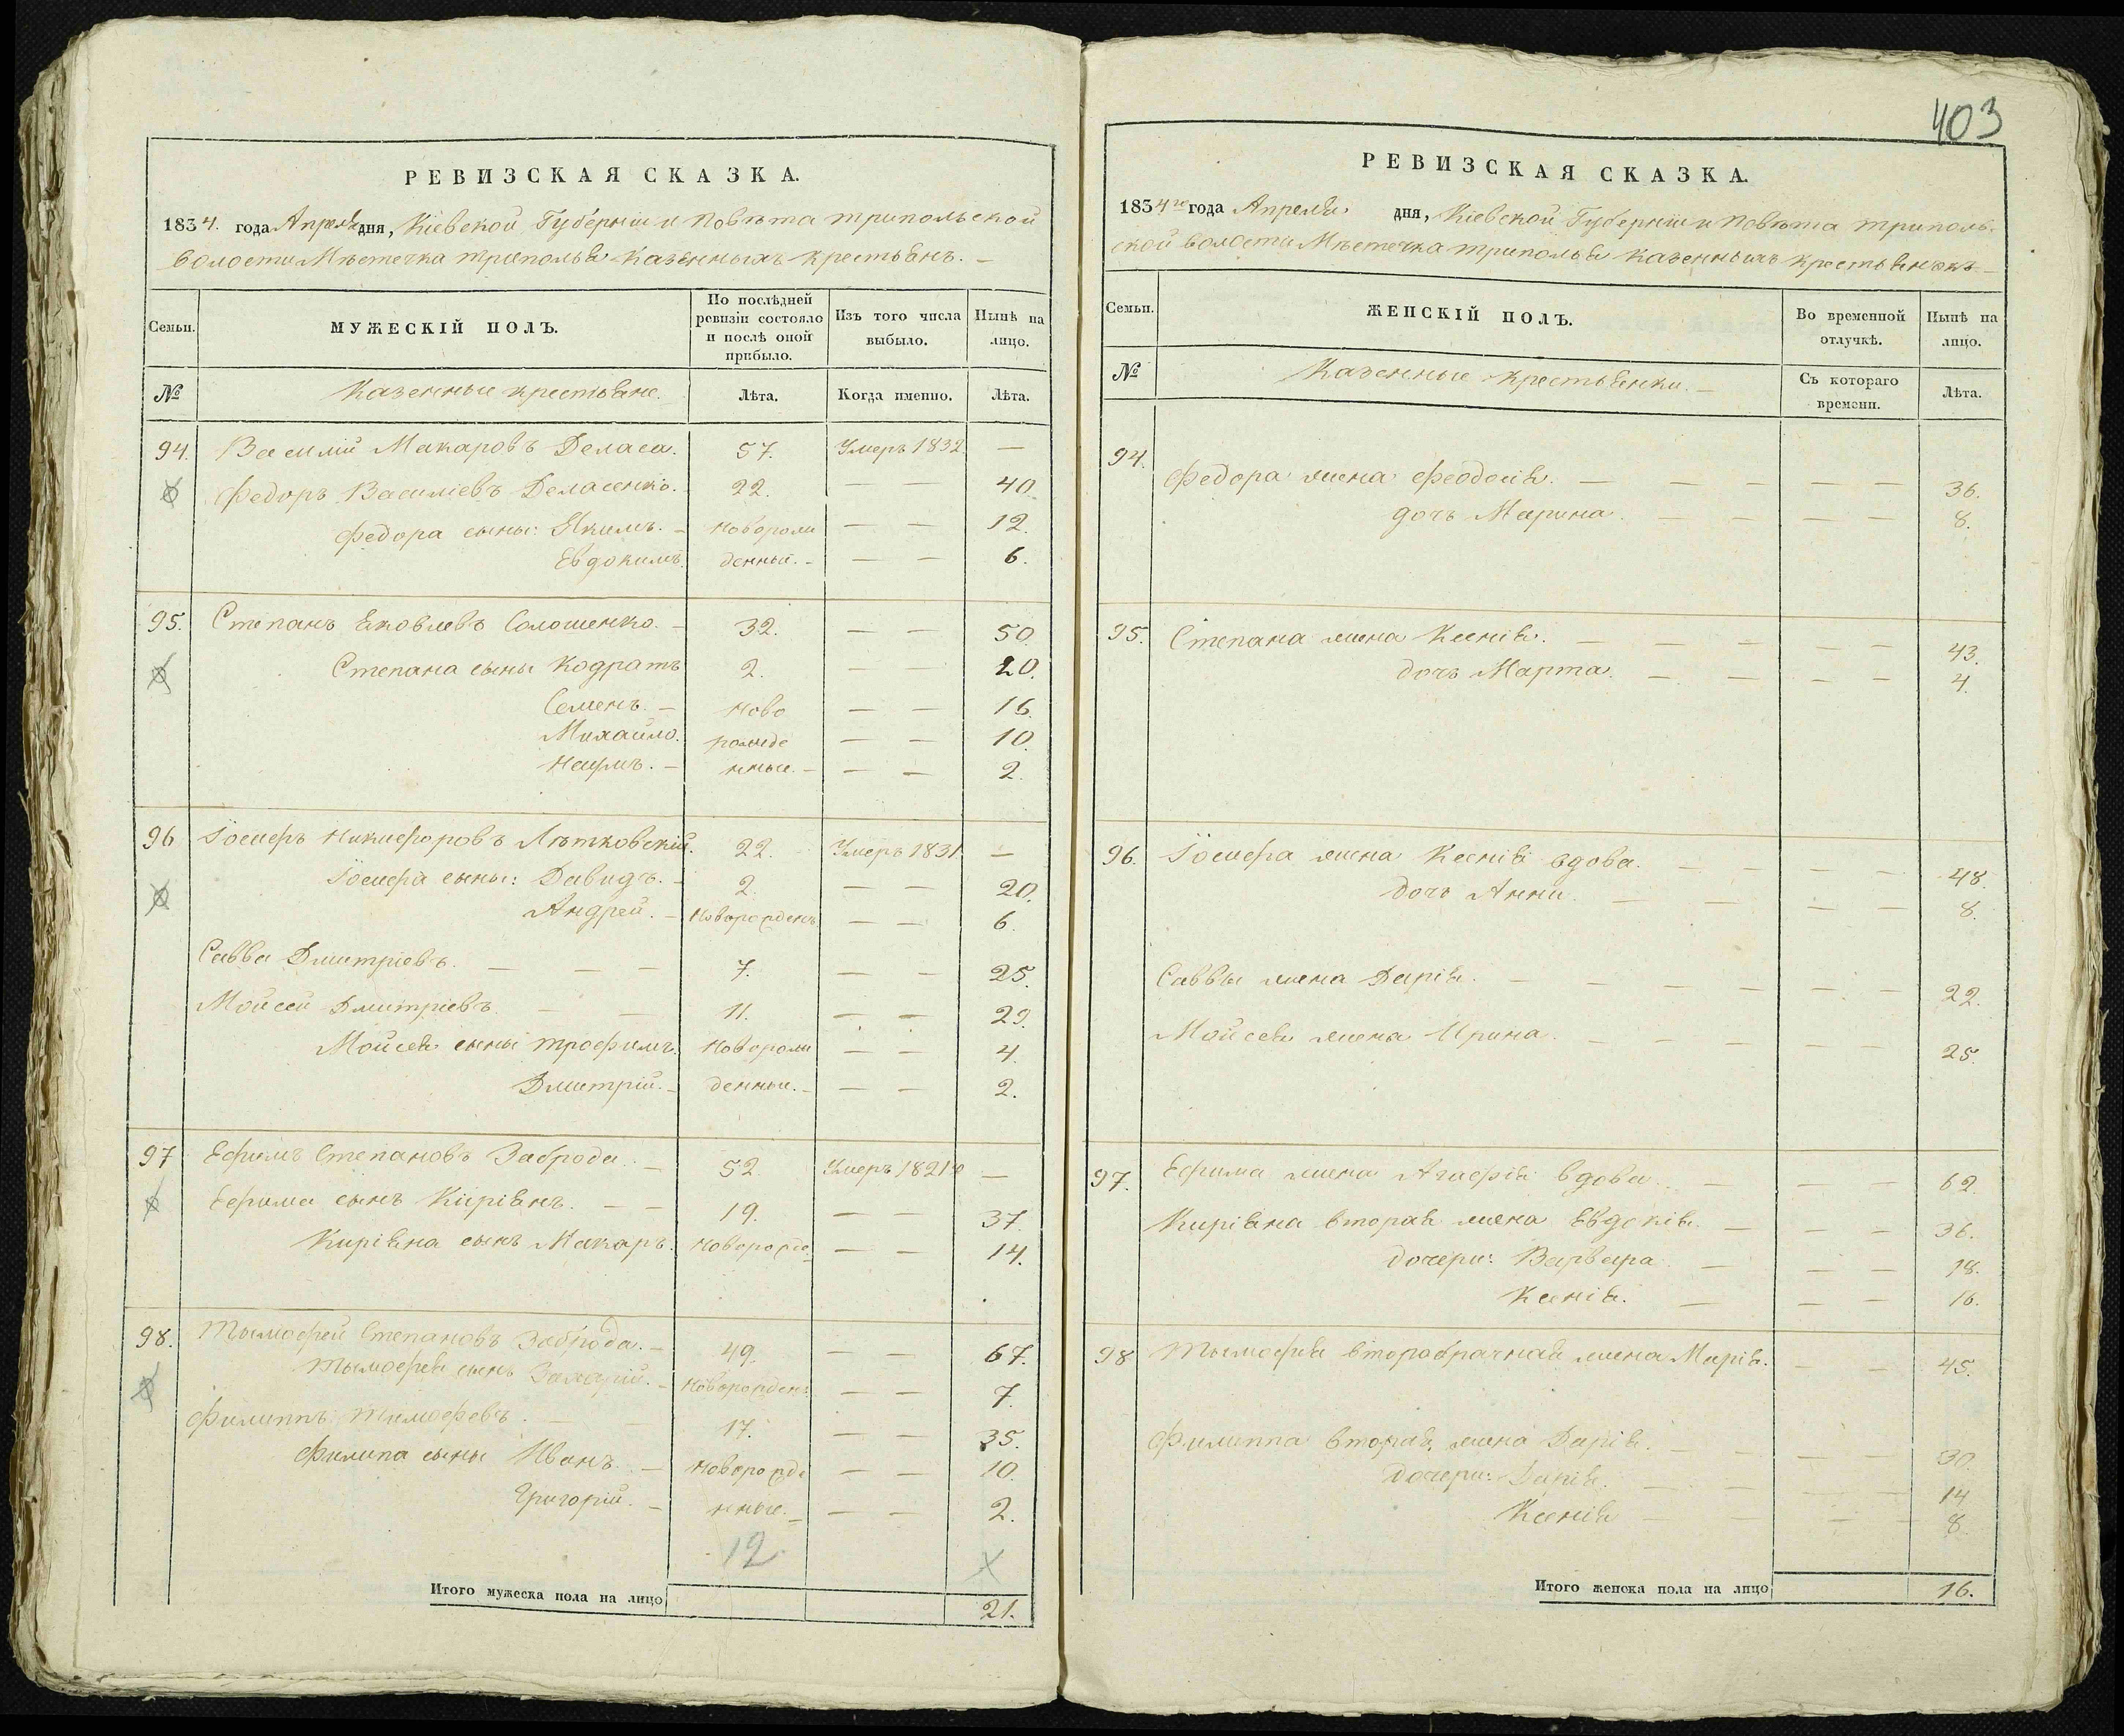 РЕВИЗСКАЯ СКАЗКА.
1834. года Апреля дня, Кіевской Губерніи и Повѣта трипольской
волости Мѣстечка триполья Казенныхъ крестьянъ. —
Семьи. МУЖЕСКІЙ ПОЛЪ. По послѣдней ревизіи состояло и послѣ оной прибыло. Изъ того числа выбыло. Нынѣ на лицо.
№ Казенные крестьяне. Лѣта. Когда именно. Лѣта.
94. Василій Макаровъ Деласа. 57. Умеръ 1832 —
Федоръ Василіевъ Деласенко. 22. — — 40.
Федора сыны: Якимъ. — Новорож — — 12.
Евдокимъ. денныи. — — — 6.
95. Степанъ Яковлевъ Солошенко. — 32. — — 50.
Степана сыны Кодратъ 2. — — 20.
Семенъ. — Ново — — 16.
Михайло. рожде — — 10.
Наумъ. — нные. — — — 2.
96 Іосифъ Никифоровъ Лѣтковскій. 22. Умеръ 1831. —
Іосифа сыны: Давидъ. — 2. — — 20.
Андрей. — Новорожденъ — — 6.
Савва Дмитріевъ. — — — 7. — — 25.
Мойсей Дмитріевъ. — — 11. — — 29.
Мойсея сыны трофимъ. Новорож — — 4.
Дмитрій. — денныи. — — — 2.
97 Ефимъ Степановъ Заброда. — 52 Умеръ 1821го —
Ефима сынъ Киріянъ. — — 19. — — 37.
Киріяна сынъ Макаръ. Новорожде — — 14.
98. Тымофей Степановъ Заброда. — 49. — — 67.
Тымофея сынъ Захарій. — Новорожденъ — — 7.
Филиппъ тимофевъ. — — 17. — — 35.
Филипа сыны Иванъ. — Новорожде — — 10.
Григорій. — нные. — — — 2.
12 X
Итого мужеска пола на лицо 21.
403
РЕВИЗСКАЯ СКАЗКА.
1834го года Апреля. дня, Кіевской Губерніи и Повѣта триполь-
ской волости Мѣстечка триполья казенныхъ крестьянокъ —
Семьи. ЖЕНСКІЙ ПОЛЪ. Во временной отлучкѣ. Нынѣ на лицо.
№ Казенные крестьянки. — Съ котораго времени. Лѣта.
94. Федора жена Феодосія. — — — — — — 36.
дочъ Марина. — — — — — 8.
95. Степана жена Ксенія. — — — — — 43.
дочъ Марта. — — — — 4.
96. Іосифа жена Ксенія вдова. — — — — 48.
дочъ Анна. — — — — 8.
Саввы жена Дарія. — — — — — — 22.
Мойсея жена Ирина. — — — — — — 25.
97. Ефима жена Агафія вдова. — — — 62.
Киріяна вторая жена Евдокія. — — — 36.
дочери: Варвара. — — — 18.
Ксенія. — — — 16.
98 Тымофея второбрачная жена Марія. — — 45.
Филиппа вторая жена Дарія. — — — — 30.
дочери: Дарія. — — — — 14
Ксенія — — — — 8.
Итого женска пола на лицо 16.